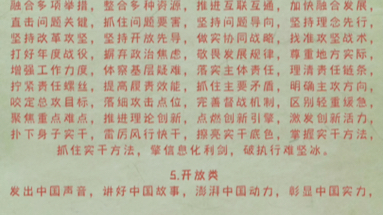 融合多项举措，整合多种资源，推进互联互通，加快融合发展，
直击问题关键，抓住问题要害，坚持问题导向，坚持理念先行，
坚持改革攻坚，坚持开放先导，做实协同战略，找准攻坚战术，
打好年度战役，摒弃政治焦虑，敬畏发展规律，尊重地方实际，
增强工作力度，体察基层疑难，落实主体责任，理清责任链条，
拧紧责任螺丝，提高履责效能，抓住主要矛盾，明确主攻方向，
咬定总攻目标，落细攻击点位，完善督战机制，区别轻重缓急，
聚焦重点难点，推进理论创新，点燃创新引擎，激发创新活力，
扑下身子实干，雷厉风行快干，擦亮实干底色，掌握实干方法，
抓住实干方法，擎信息化利剑，破执行难坚冰。
5.开放类
发出中国声音，讲好中国故事，澎湃中国动力，彰显中国实力，